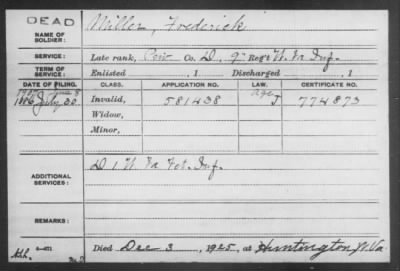 DEAD
NAME OF SOLDIER: Miller, Frederick
SERVICE: Late rank, Co. D, 9" Reg't W. Va Inf.
TERM OF SERVICE: Enlisted , 1 Discharged , 1
DATE OF FILING. CLASS. APPLICATION NO. LAW. CERTIFICATE NO.
July 30. Invalid, 581438 Age J 774873
Widow,
Minor,
ADDITIONAL SERVICES: D 1 W Va Vet. Inf.
REMARKS:
Died Dec 3, 1925, at Huntington, W. Va.